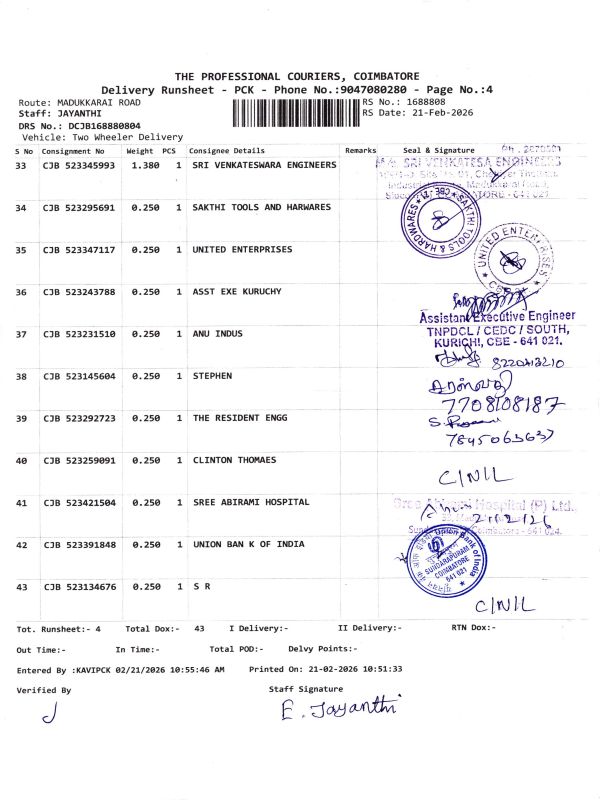 THE PROFESSIONAL COURIERS, COIMBATORE
Delivery Runsheet - PCK - Phone No.:9047080280 - Page No.:4
Route: MADUKKARAI ROAD RS No.: 1688808
Staff: JAYANTHI RS Date: 21-Feb-2026
DRS No.: DCJB168880804
Vehicle: Two Wheeler Delivery
S No Consignment No Weight PCS Consignee Details Remarks Seal & Signature
33 CJB 523345993 1.380 1 SRI VENKATESWARA ENGINEERS
SRI VENKATESA ENGINEERS
34 CJB 523295691 0.250 1 SAKTHI TOOLS AND HARWARES
SAKTHI TOOLS & HARDWARES
35 CJB 523347117 0.250 1 UNITED ENTERPRISES
UNITED ENTERPRISES
CSE
36 CJB 523243788 0.250 1 ASST EXE KURUCHY
Assistant Executive Engineer
TNPDCL / CEDC / SOUTH,
KURICHI, CSE - 641 021.
37 CJB 523231510 0.250 1 ANU INDUS
38 CJB 523145604 0.250 1 STEPHEN
7708108187
39 CJB 523292723 0.250 1 THE RESIDENT ENGG
7845063637
40 CJB 523259091 0.250 1 CLINTON THOMAES
C/NIL
41 CJB 523421504 0.250 1 SREE ABIRAMI HOSPITAL
Sree Abirami Hospital (P) Ltd.,
21/2/26
42 CJB 523391848 0.250 1 UNION BAN K OF INDIA
Union Bank of India
SUNDARAPURAM
COIMBATORE
641 021
43 CJB 523134676 0.250 1 S R
C/NIL
Tot. Runsheet:- 4 Total Dox:- 43 I Delivery:- II Delivery:- RTN Dox:-
Out Time:- In Time:- Total POD:- Delvy Points:-
Entered By :KAVIPCK 02/21/2026 10:55:46 AM Printed On: 21-02-2026 10:51:33
Verified By Staff Signature
E. Jayanthi